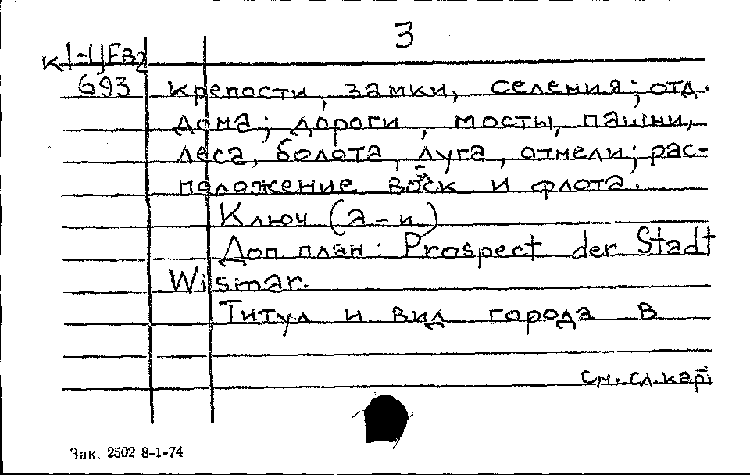 3
К 1-Ц/Fв2
693 Крепости, замки, селения; отд.
дома; дороги, мосты, пашни,
леса, болота, луга, отмели; рас-
положение войск и флота.
Ключ (а-и)
Доп. план: Prospect der Stadt
Wismar.
Титул и вид города в
см. сл. карт
Зак. 2502 8-1-74